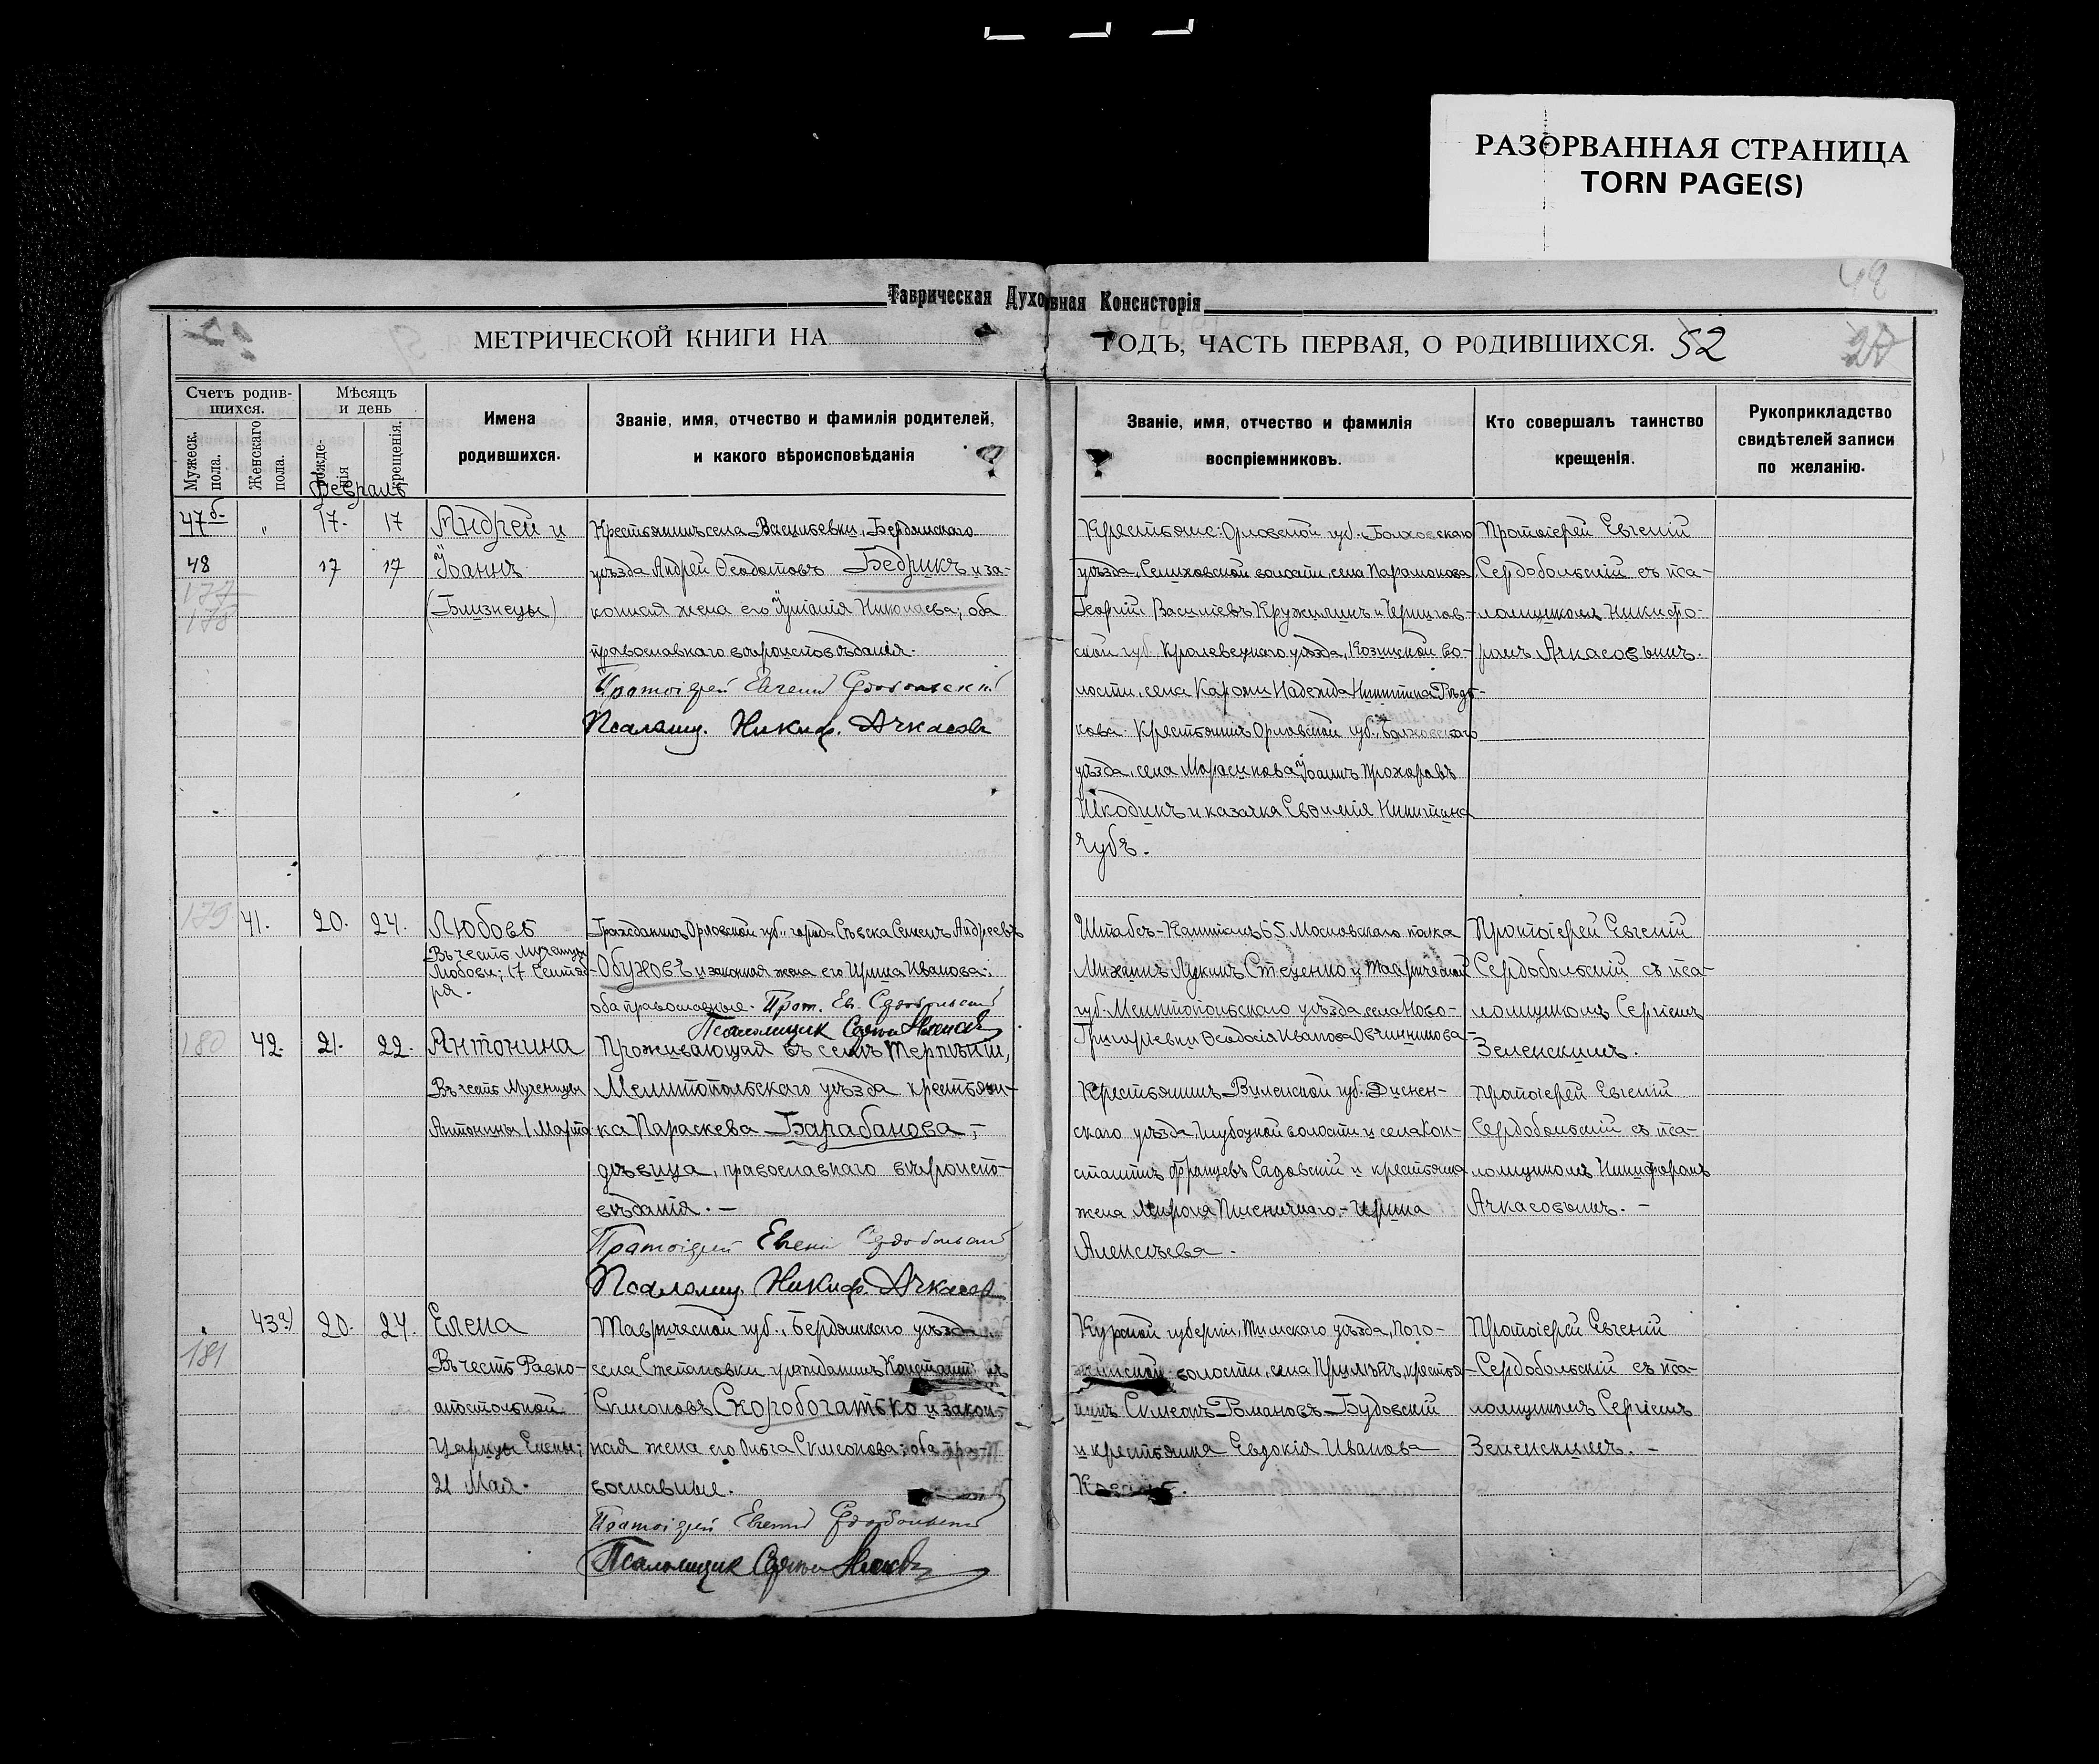 РАЗОРВАННАЯ СТРАНИЦА
TORN PAGE(S)
49
Таврическая Духовная Консисторія
МЕТРИЧЕСКОЙ КНИГИ НА
ГОДЪ, ЧАСТЬ ПЕРВАЯ, О РОДИВШИХСЯ. 52
Счетъ родив-
шихся.
Мужеск.
пола.
Женскаго
пола.
Мѣсяцъ
и день
рожде-
нія
крещенія.
Имена
родившихся.
Званіе, имя, отчество и фамилія родителей,
и какого вѣроисповѣданія
Званіе, имя, отчество и фамилія
воспріемниковъ.
Кто совершалъ таинство
крещенія.
Рукоприкладство
свидѣтелей записи
по желанію.
Февраль
47 б. " 17. 17
48 17 17
177
178
Андрей и
Іоаннъ
(Близнецы)
Крестьянинъ села Васильевки, Бердянскаго
уѣзда Андрей Ѳеодотовъ Бедрикъ и за-
конная жена его Іуліанія Николаева; оба
православнаго вѣроисповѣданія.
Протоіерей Евгеній Сердобольскій
Псаломщ. Никиф. Ачкасовъ
Крестьяне: Орловской губ. Болховскаго
уѣзда, Селиховской волости, села Парамонова
Георгій Василіевъ Кружилинъ и Чернигов-
ской губ. Кролевецкаго уѣзда, во-
лости, села Надежда Никитина
кова. Крестьянинъ Орловской губ., Болховскаго
уѣзда, села Іоаннъ Прохоровъ
Шкодинъ и казачка Евѳимія Никитина
Чубъ.
Протоіерей Евгеній
Сердобольскій съ пса-
ломщикомъ Никифо-
ромъ Ачкасовымъ.
179 41. 20. 24.
Любовь
Въ честь Мученицы
Любови; 17 Сентяб-
ря.
Гражданинъ Орловской губ., города Сѣвска Семенъ Андреевъ
Обуховъ и законная жена его Ирина Иванова;
оба православные. Прот. Ев. Сердобольскій
Псаломщик
Штабсъ-Капитанъ 65 Московскаго полка
Михаилъ Лукинъ Стеценко и Таврической
губ. Мелитопольскаго уѣзда, села Ново-
Григорьевки Ѳеодосія Иванова Овчинникова
Протоіерей Евгеній
Сердобольскій съ пса-
ломщикомъ Сергіемъ
Зеленскимъ.
180 42. 21. 22.
Антонина
Въ честь Мученицы
Антонины 1 Марта
Проживающая въ селѣ Терпѣніи,
Мелитопольскаго уѣзда крестьян-
ка Параскева Барабанова,-
дѣвица, православнаго вѣроиспо-
вѣданія.-
Протоіерей Евгеній Сердобольскій
Псаломщ. Никиф. Ачкасов
Крестьянинъ Виленской губ. Диснен-
скаго уѣзда, Глубоцкой волости и села Кон-
стантинъ Францевъ Садовскій и крестьянка
жена Мирона Пшеничнаго.- Ирина
Алексѣева.
Протоіерей Евгеній
Сердобольскій съ пса-
ломщикомъ Никифоромъ
Ачкасовымъ.-
43 а) 20. 24.
181
Елена
Въ честь Равно-
апостольной
Царицы Елены;
21 Мая.
Таврической губ., Бердянскаго уѣзда
села Степановки гражданинъ Константинъ
Симеоновъ Скоробогатько и закон-
ная жена его Ольга Симеонова; оба пра-
вославные.
Протоіерей Евгеній Сердобольскій
Псаломщик
Курской губерніи, Тимскаго уѣзда,
волости, села крестья-
нинъ Симеонъ Романовъ Будовскій
и крестьянка Евдокія Иванова
Протоіерей Евгеній
Сердобольскій съ пса-
ломщикомъ Сергіемъ
Зеленскимъ.-